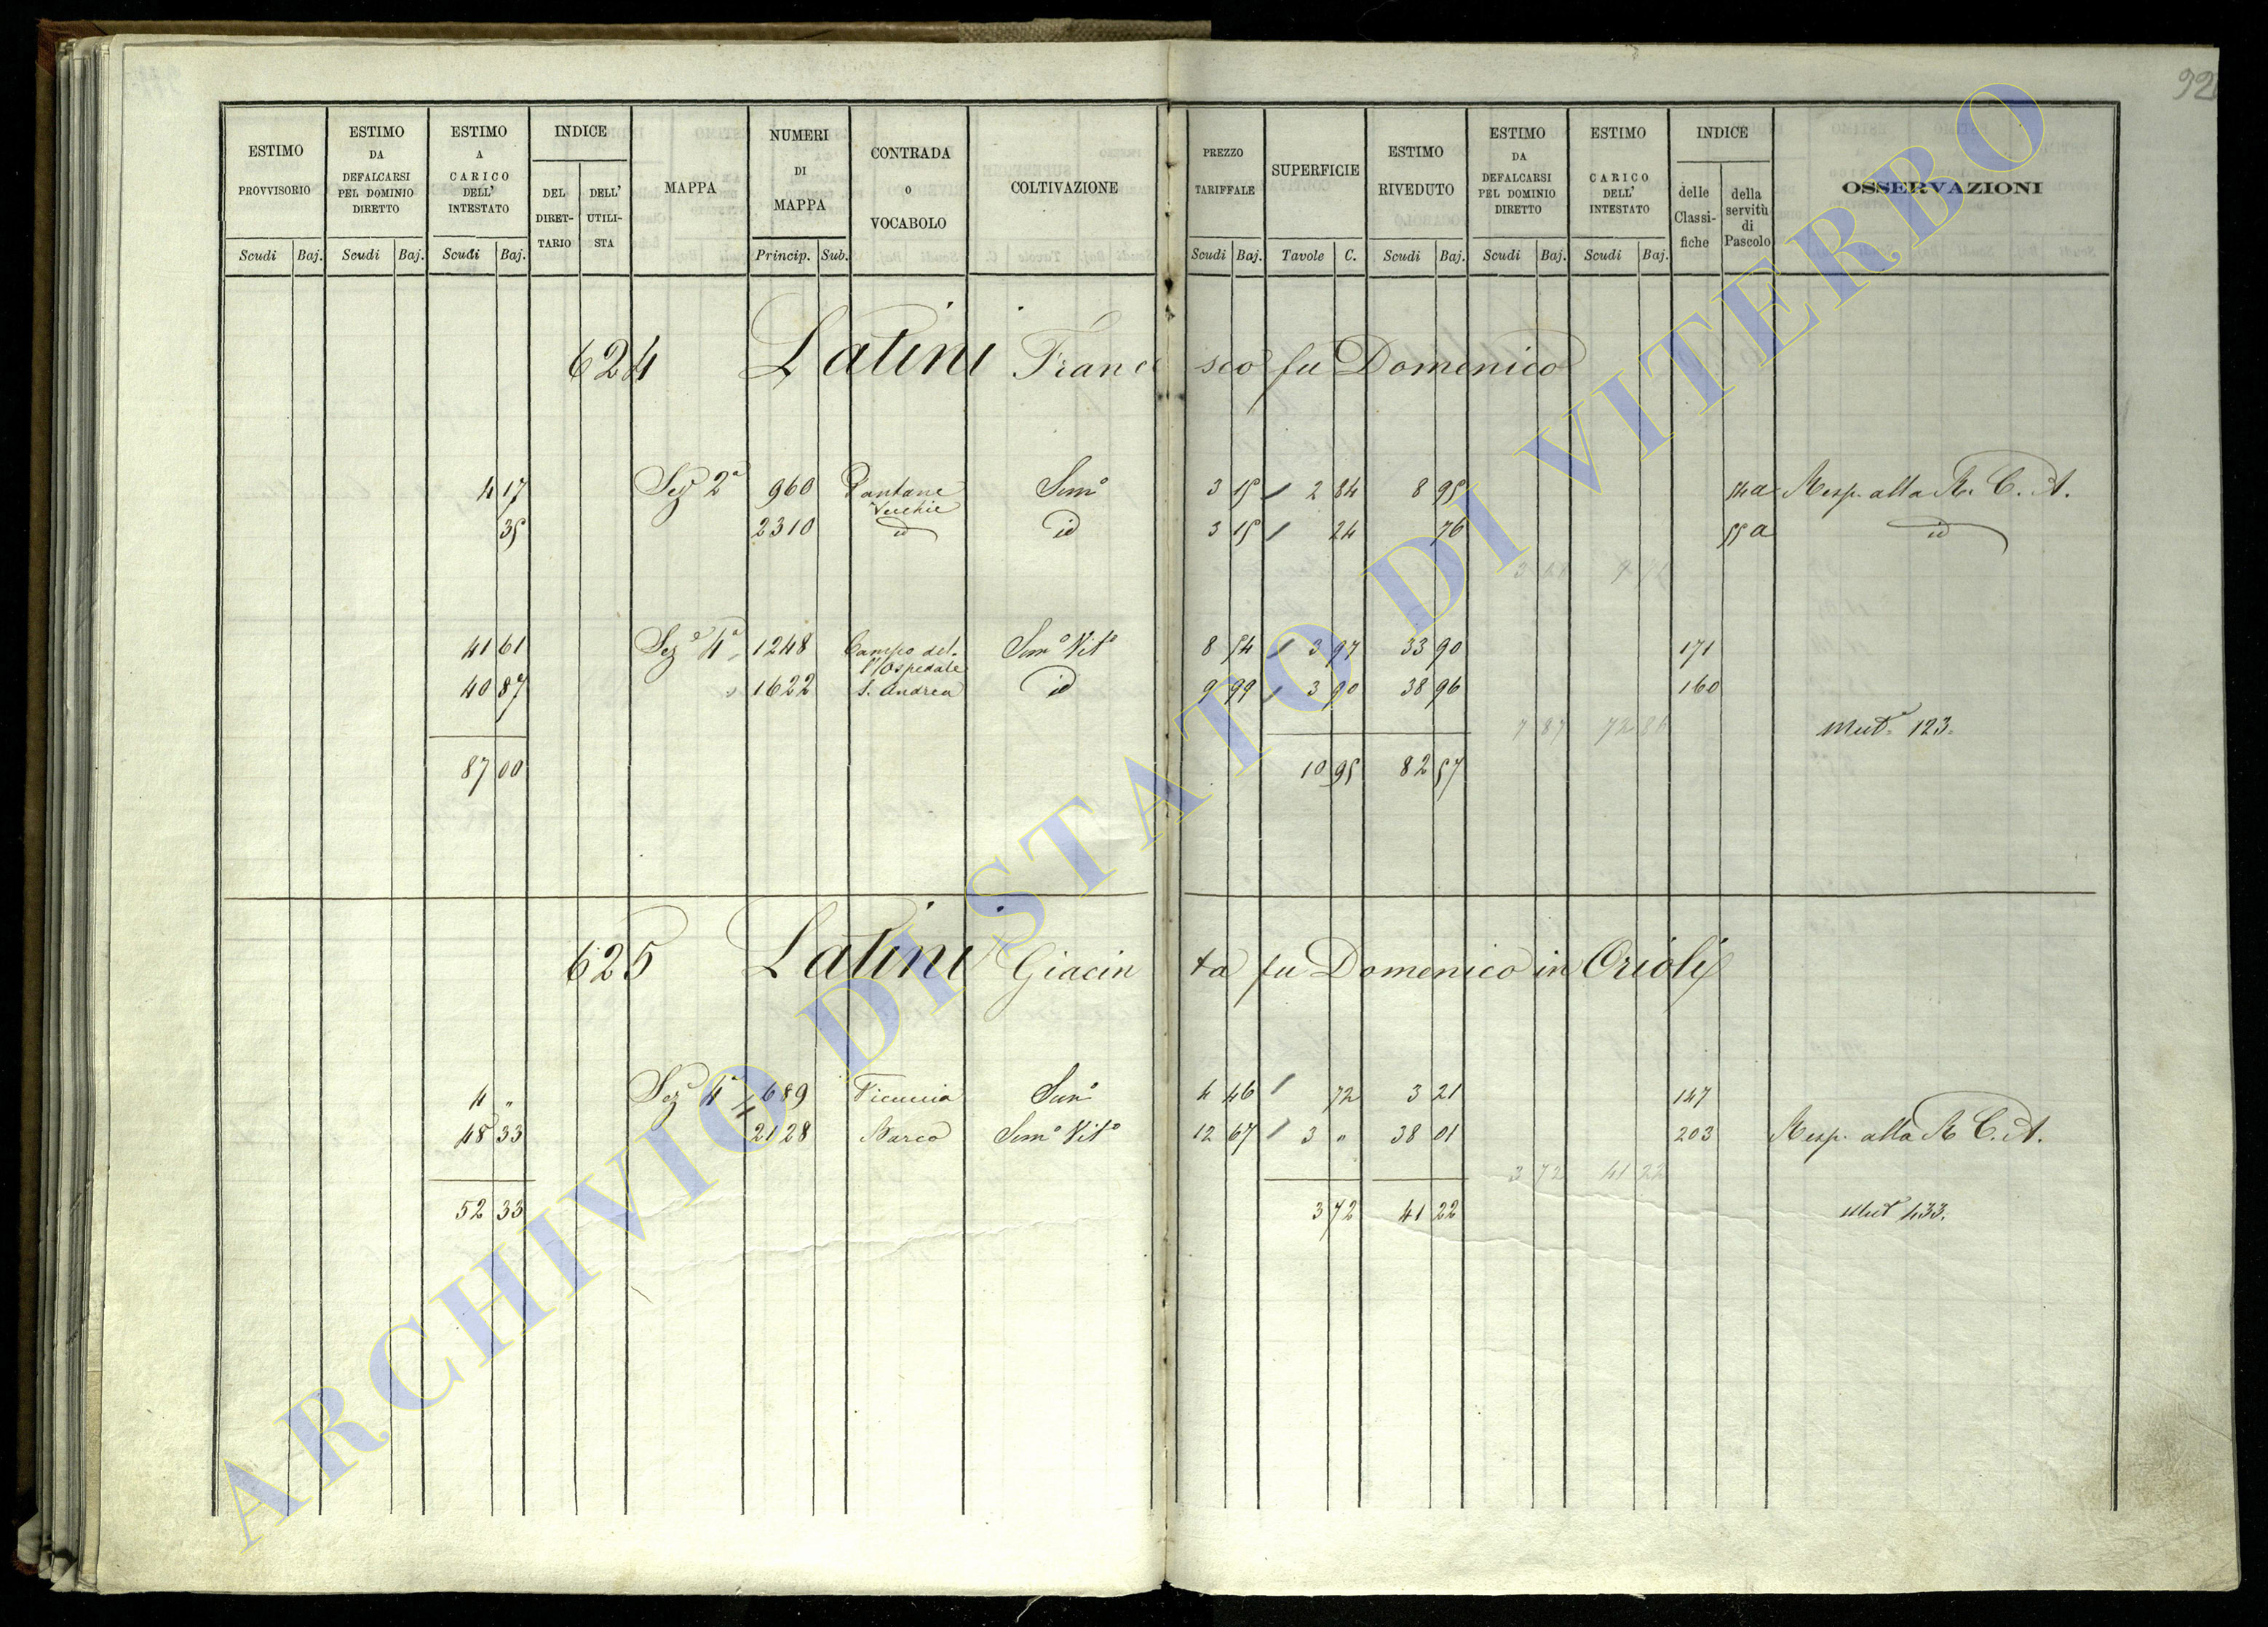 92
ESTIMO PROVVISORIO Scudi Baj.
ESTIMO DA DEFALCARSI PEL DOMINIO DIRETTO Scudi Baj.
ESTIMO A CARICO DELL' INTESTATO Scudi Baj.
INDICE DEL DIRET-TARIO DELL' UTILI-STA
MAPPA
NUMERI DI MAPPA Princip. Sub.
CONTRADA O VOCABOLO
COLTIVAZIONE
PREZZO TARIFFALE Scudi Baj.
SUPERFICIE Tavole C.
ESTIMO RIVEDUTO Scudi Baj.
ESTIMO DA DEFALCARSI PEL DOMINIO DIRETTO Scudi Baj.
ESTIMO A CARICO DELL' INTESTATO Scudi Baj.
INDICE delle Classi-fiche della servitù di Pascolo
OSSERVAZIONI
624 Latini Francesco fu Domenico
4 17 Sez 2a 960 Pantane Vecchie Semo 3 15 2 84 8 95 54 a Resp. alla R. C. A.
35 2310 id id 3 15 24 76 55 a id
41 61 Seze 4a 1248 Campo del-l'Ospedale Semo Vito 8 54 3 97 33 90 171
40 87 " 1622 S. Andrea id 9 99 3 90 38 96 160
7 87 72 86 Mut. 123.
87 00 10 95 82 57
625 Latini Giacinta fu Domenico in Orioli
4 " Sez 4a 689 Ficuccia Semo 4 46 72 3 21 147
48 33 2128 Barco Semo Vito 12 67 3 " 38 01 203 Resp. alla R C. A.
3 72 41 22
52 33 3 72 41 22 Mut 433.
ARCHIVIO DI STATO DI VITERBO